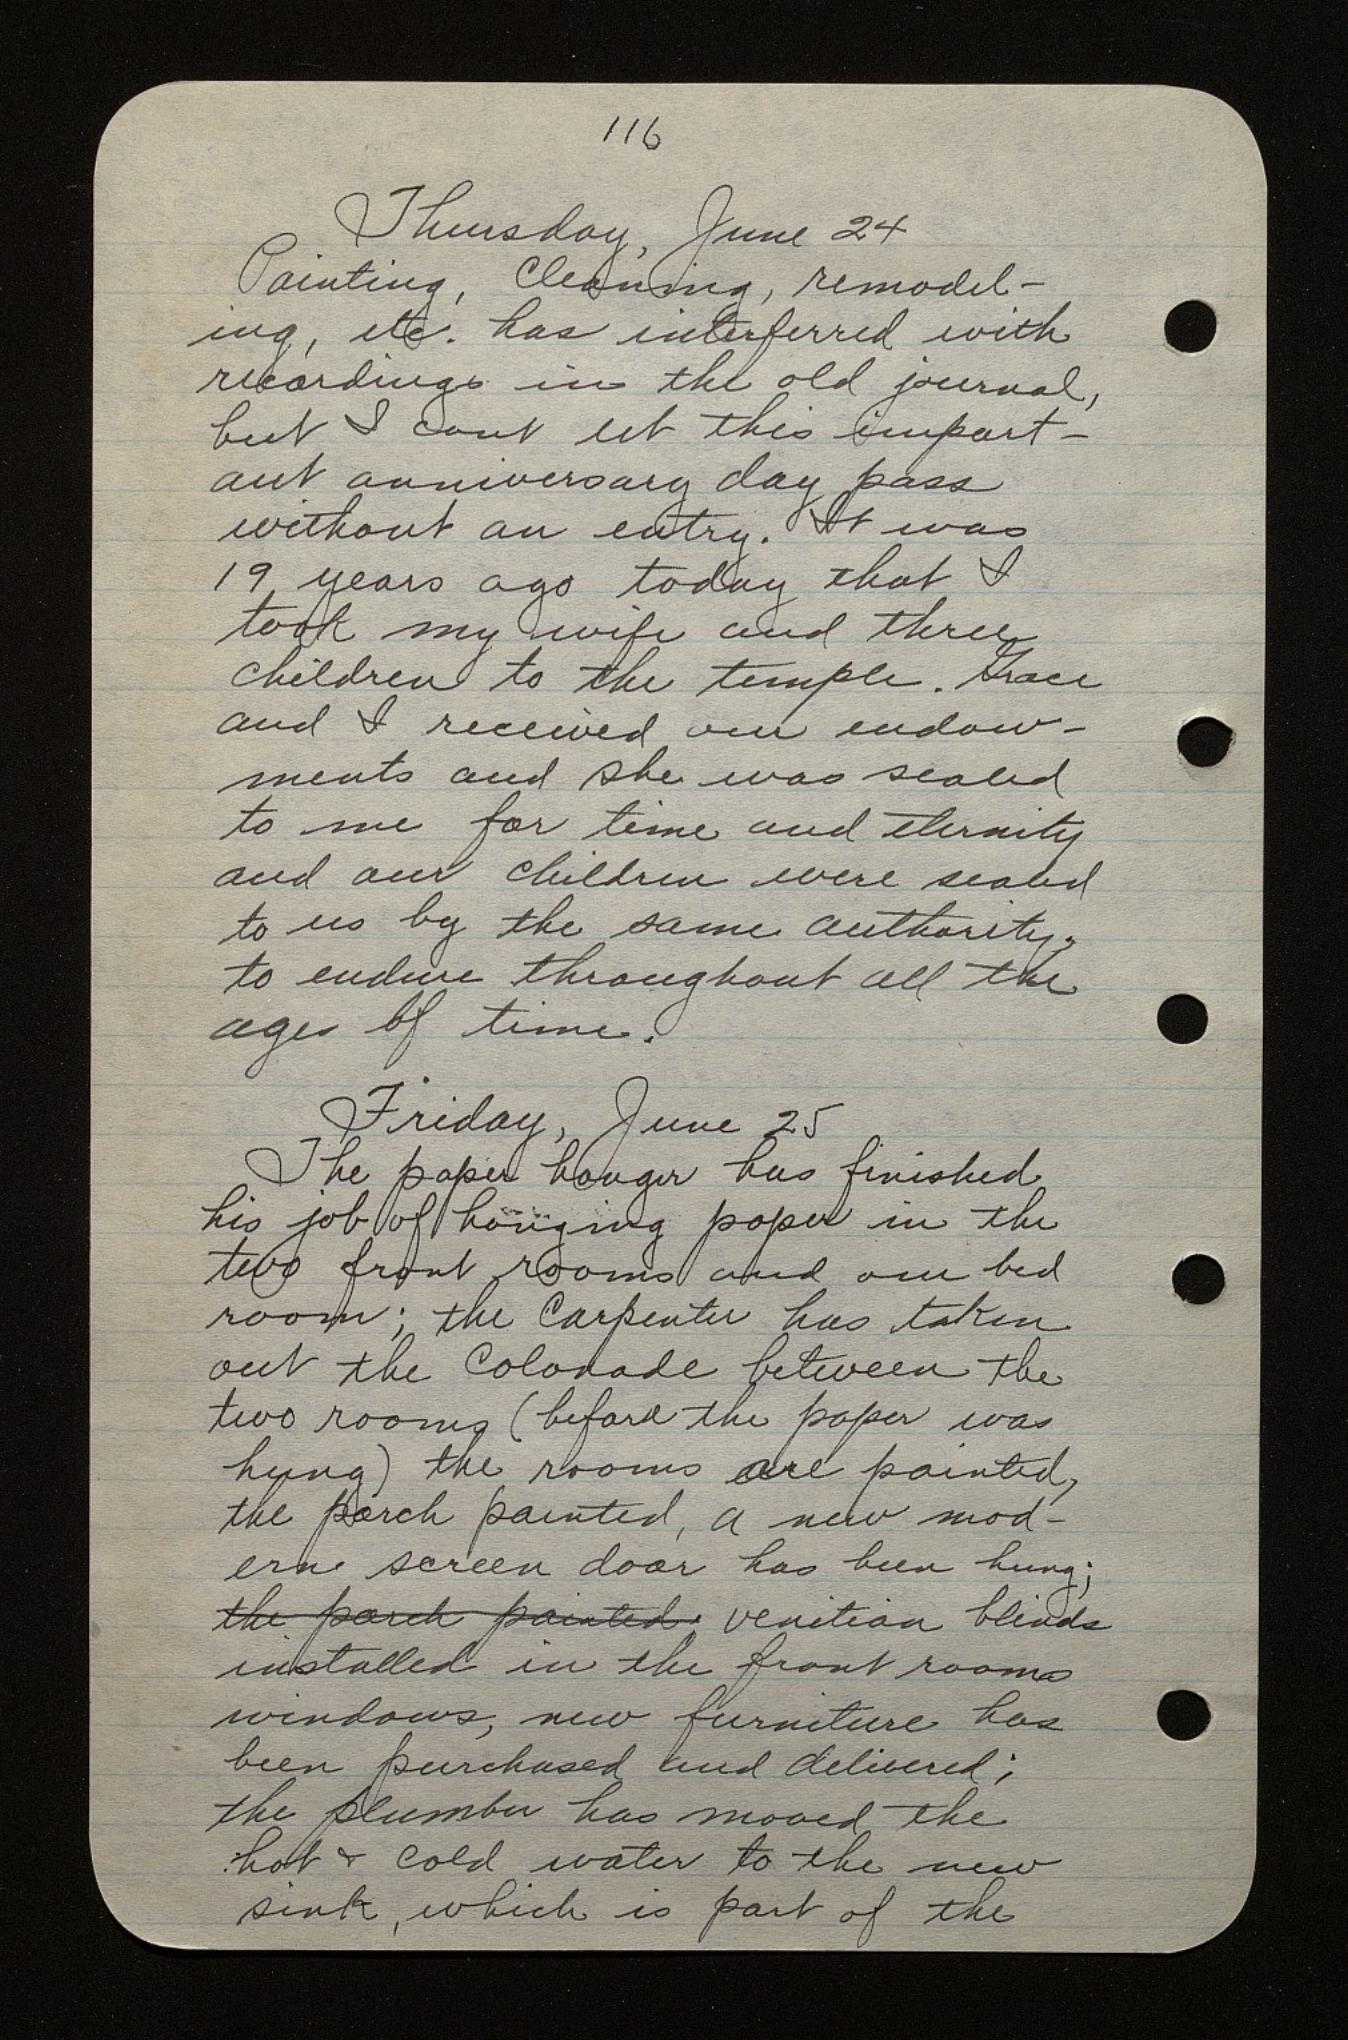 116
Thursday, June 24
Painting, Cleaning, remodel-
ing, etc. has interferred with
recordings in the old journal,
but I cant let this import-
ant anniversary day pass
without an entry. It was
19 years ago today that I
took my wife and three
children to the temple. Grace
and I received our endow-
ments and she was sealed
to me for time and eternity
and our children were sealed
to us by the same authority,
to endure throughout all the
ages of time.
Friday, June 25
The paper hanger has finished
his job of hanging paper in the
two front rooms and our bed
room; the Carpenter has taken
out the Colonade between the
two rooms (before the paper was
hung) the rooms are painted,
the porch painted, a new mod-
ern screen door has been hung;
the porch painted; venitian blinds
installed in the front rooms
windows, new furniture has
been purchased and delivered;
the plumber has moved the
hot & cold water to the new
sink, which is part of the